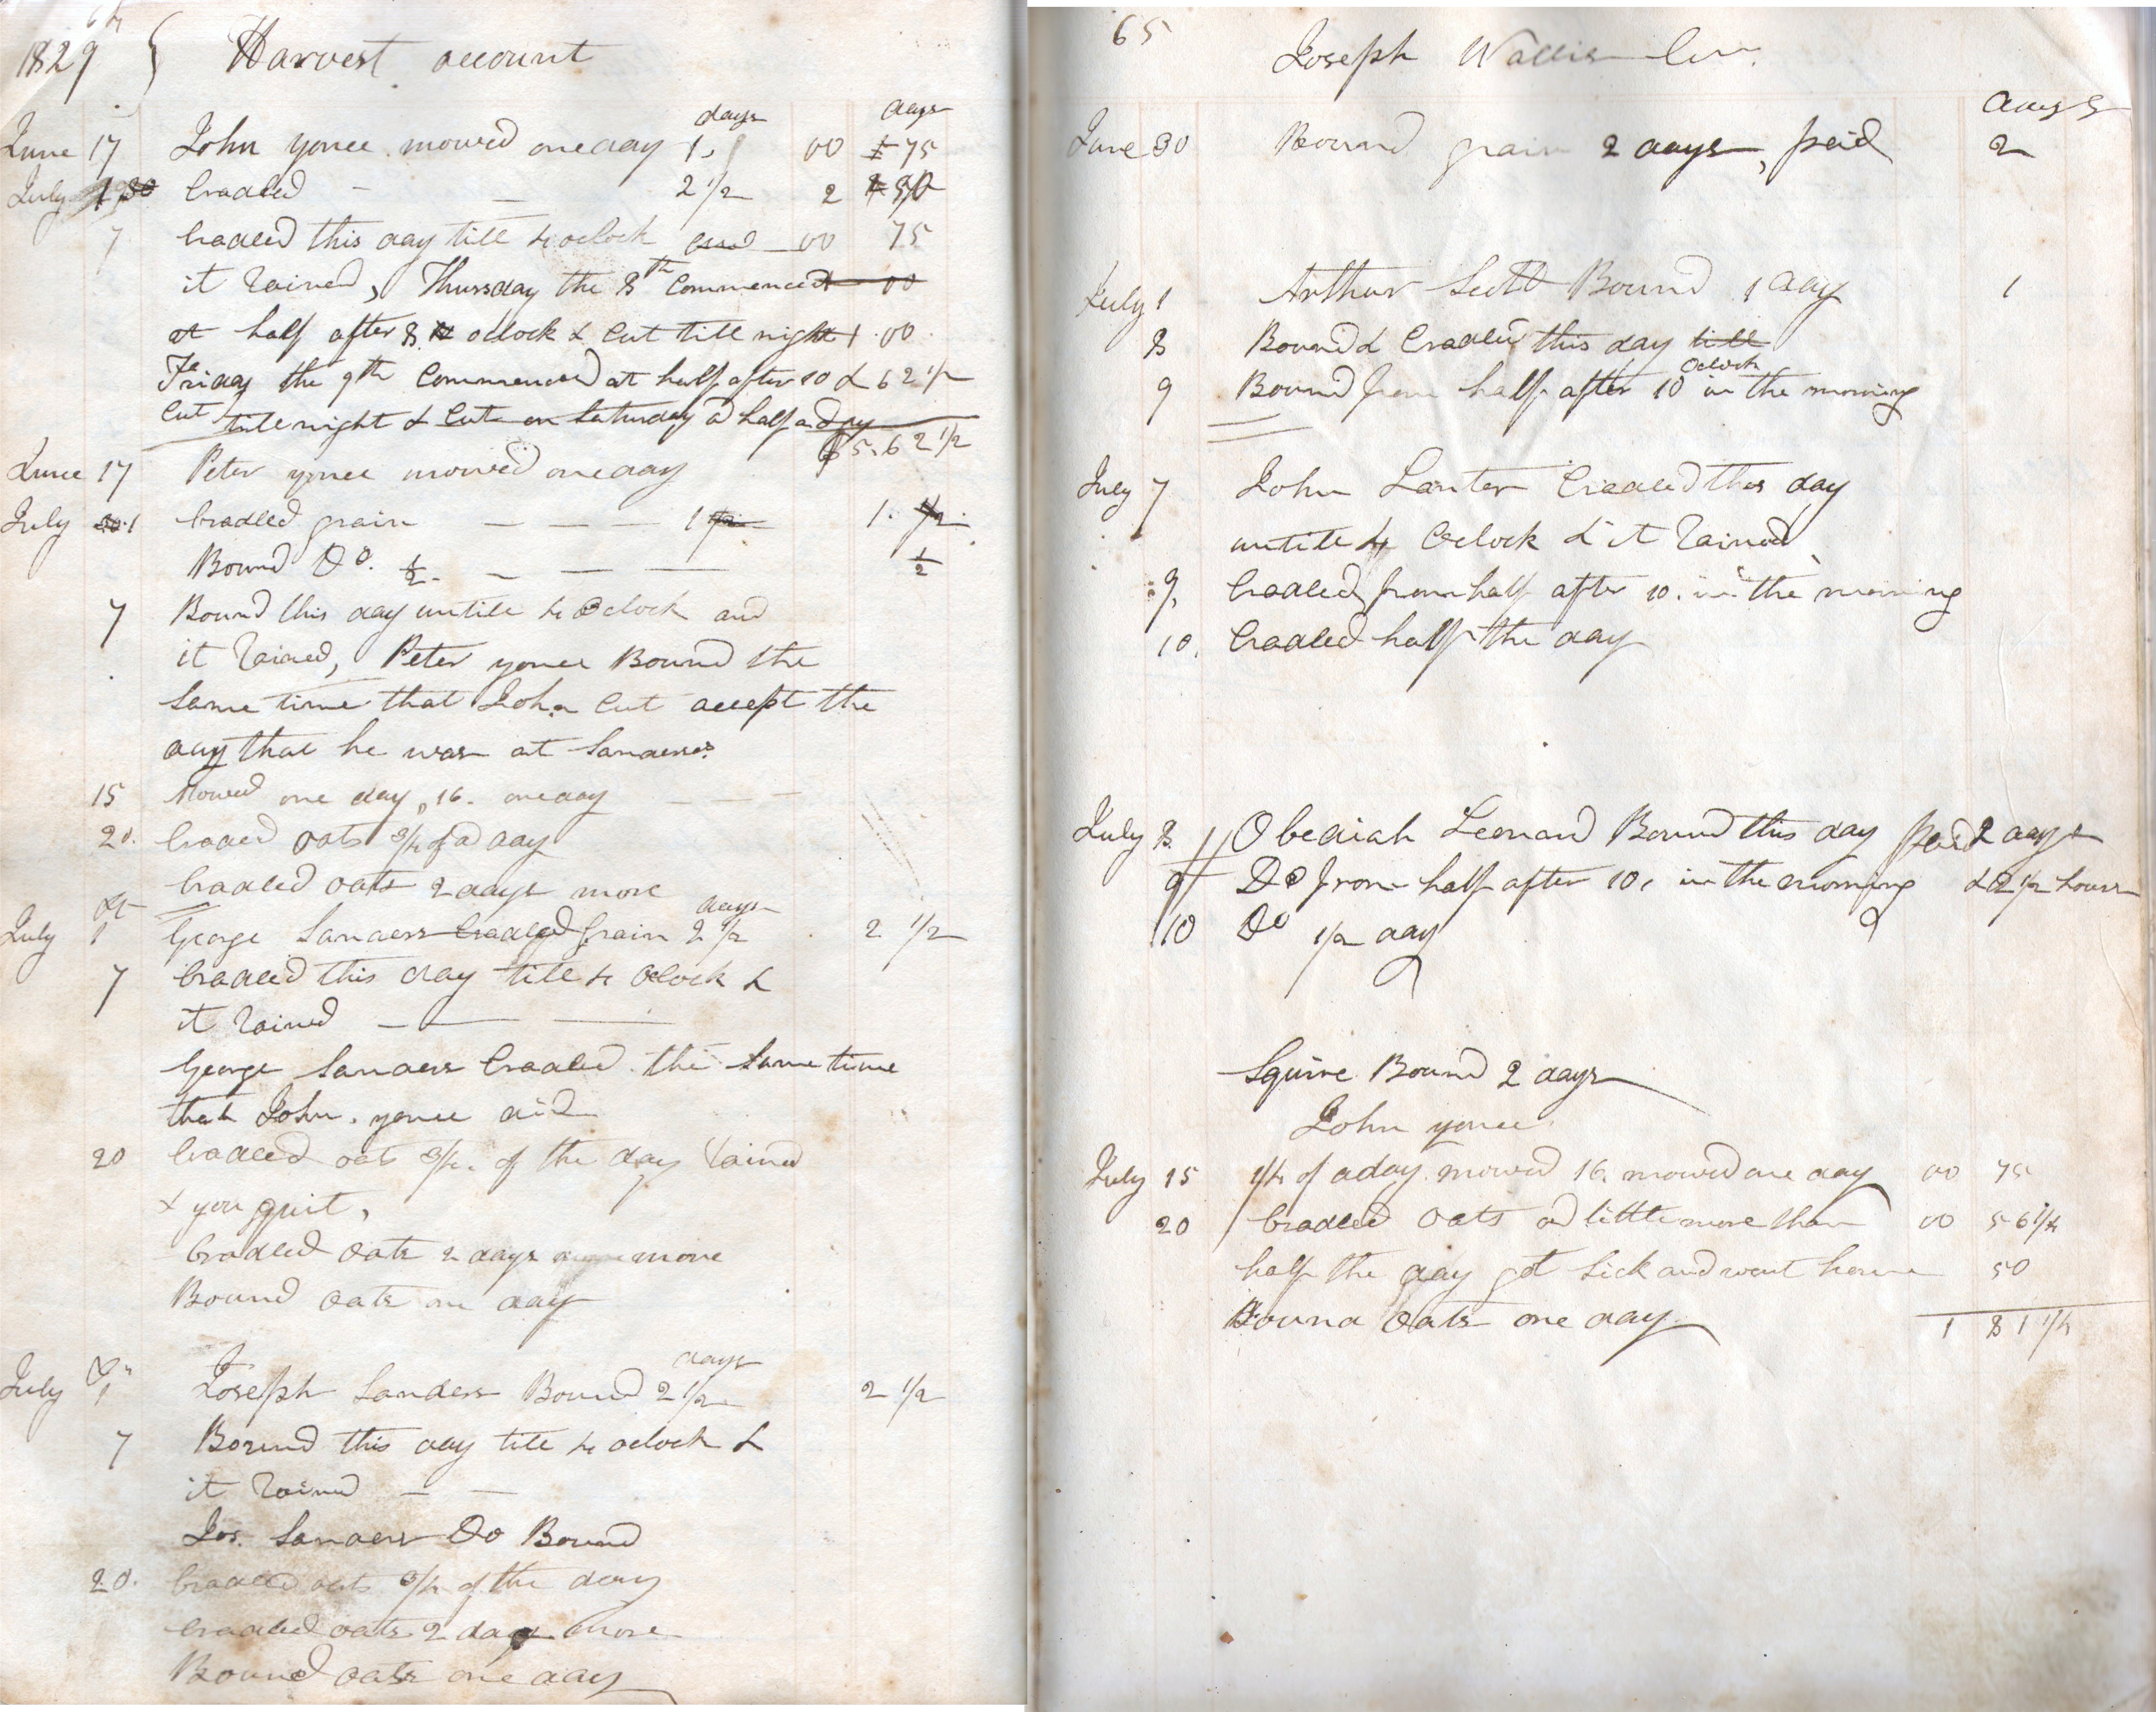 1829 Harvest account
days days
June 17 John yonce mowed one day 1, 00 75
July 1 Cradled - - 2 1/2 2
7 Cradled this day till 4 oclock 00 75
it rained, Thursday the 8th Commenced 00
at half after 8 oclock & Cut till night 1.00
Friday the 9th Commenced at half after 10 & 62 1/2
Cut till night & Cut on Saturday a half a day
$5.62 1/2
June 17 Peter yonce mowed one day
July 1 Cradled grain - - - 1 1.
Bound Do. 1/2 - - - 1/2
7 Bound this day untill 4 oclock and
it rained, Peter yonce Bound the
same time that John Cut accept the
day that he was at Sanders.
15 Mowed one day, 16. one day - - -
20. Cradled oats 3/4 of a day
Cradled oats 2 days more
days
July 1 George Sanders Cradled grain 2 1/2 2 1/2
7 Cradled this day till 4 Oclock &
it rained - - -
George Sanders Cradled the same time
that John. yonce did
20 Cradled oats 3/4. of the day rained
& you quit,
Cradled oats 2 days more
Bound oats one day
days
July 1 Joseph Sanders Bound 2 1/2 2 1/2
7 Bound this day till 4 oclock &
it rained - -
Jos. Sanders Do Bound
20. Cradled oats 3/4 of the day
Cradled oats 2 days more
Bound oats one day
65
Joseph Wallis
days
June 30 Bound grain 2 days, paid 2
July 1 Arthur Scott Bound 1 day 1
8 Bound & Cradled this day till
oclock
9 Bound from half after 10 in the morning
July 7 John Lanter Cradled this day
untill 4 Oclock & it rained
9, Cradled from half after 10. in the morning
10. Cradled half the day
July 8 Obediah Leonard Bound this day paid 2 days
9 Do from half after 10, in the morning & 2 1/2 hours
10 Do 1/2 day
Squire Bound 2 days
John yonce
July 15 1/4 of a day mowed 16. mowed one day 00 75
20 Cradled oats a little more than 00 56 1/4
half the day got sick and went home 50
Bound Oats one day
1 81 1/4